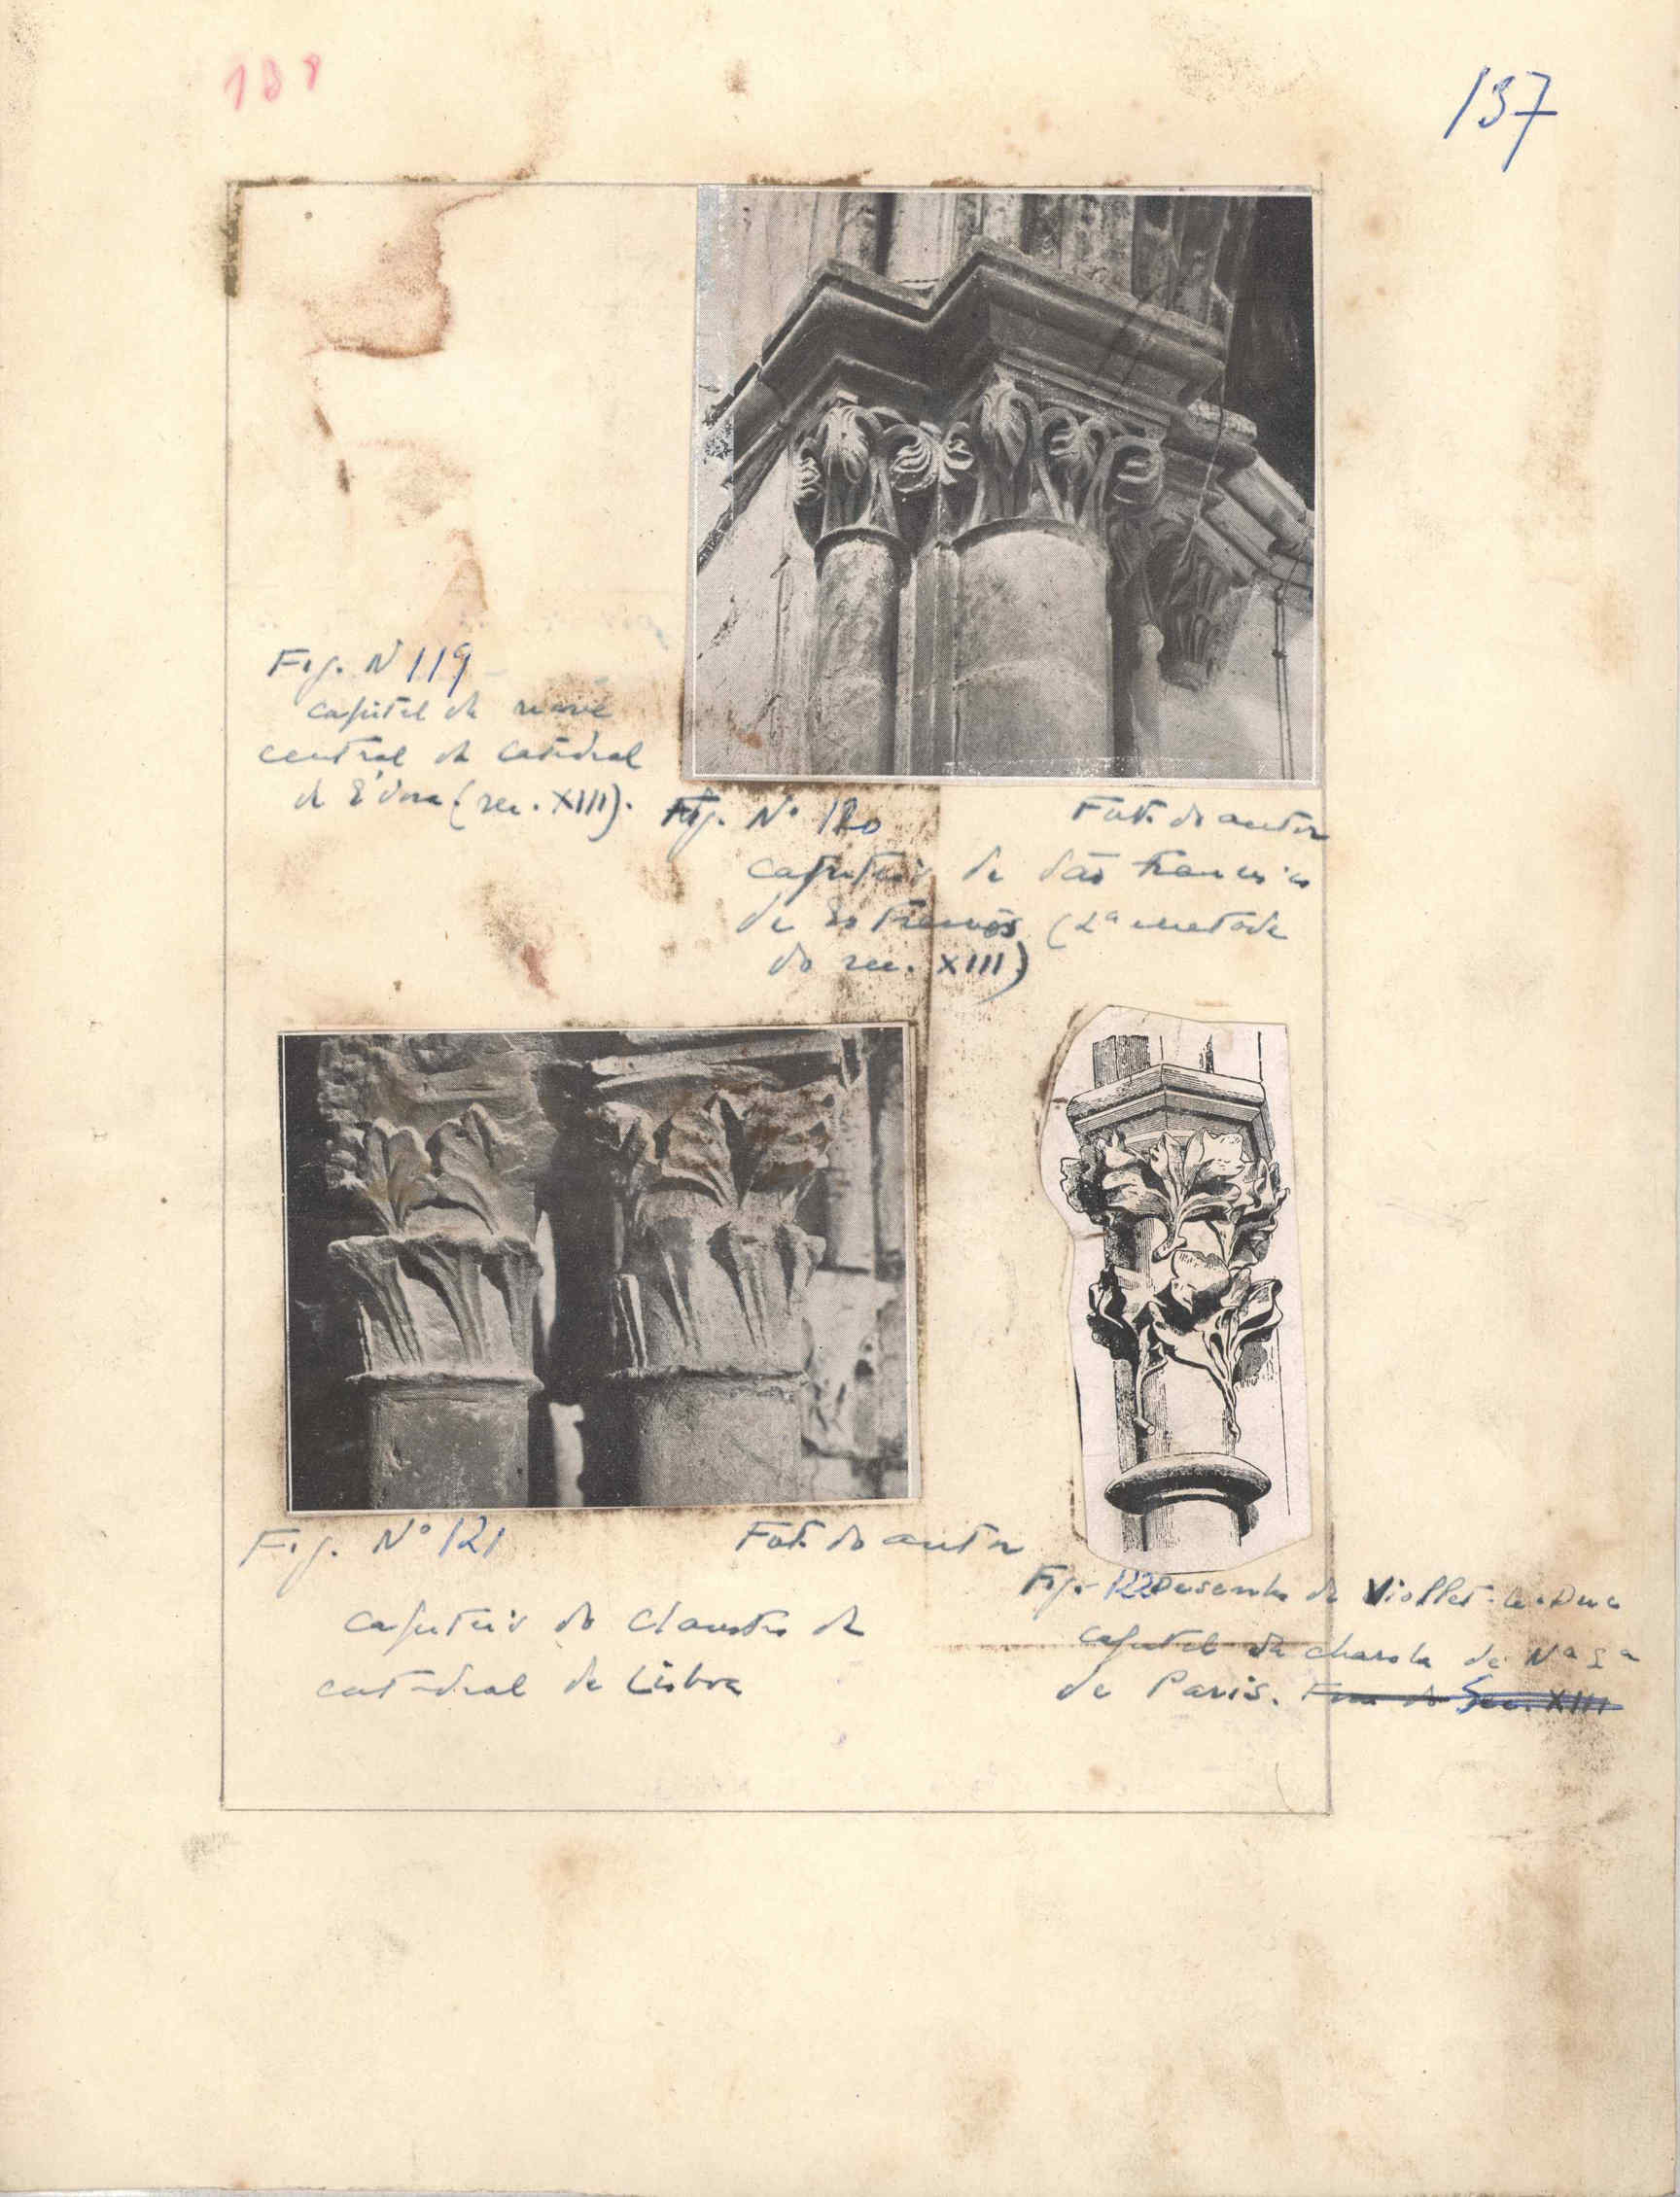 138
137
Fig. N 119
capitel da nave
central da catedral
de Évora (sec. XIII).
Fig. Nº 120
Fot. do autor
capiteis de São Francisco
de Estremôs (2ª metade
do sec. XIII)
Fig. Nº 121
Fot. do autor
capiteis do claustro da
catedral de Lisboa
Fig. 122 Desenho de Viollet-le-Duc
capitel da charola de Nª Sª
de Paris. Fim do Sec. XIII